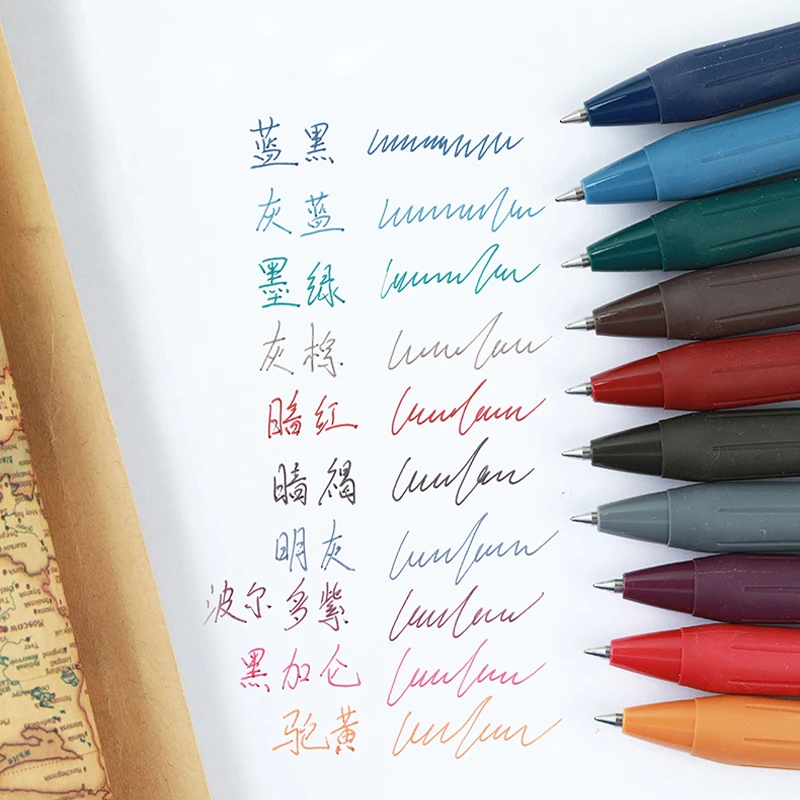 蓝黑
灰蓝
墨绿
灰棕
暗红
暗褐
明灰
波尔多紫
黑加仑
驼黄
MOSCOW